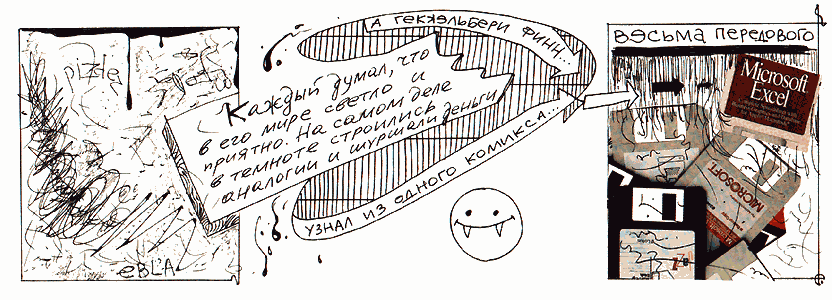 pizzle
EBL'A
Каждый думал, что
в его мире светло и
приятно. На самом деле
в темноте строились
аналогии и шуршали деньги
А ГЕККЭЛЬБЕРИ ФИНН...
УЗНАЛ ИЗ ОДНОГО КОМИКСА...
ВЕСЬМА ПЕРЕДОВОГО
Microsoft
Excel
MICROSOFT